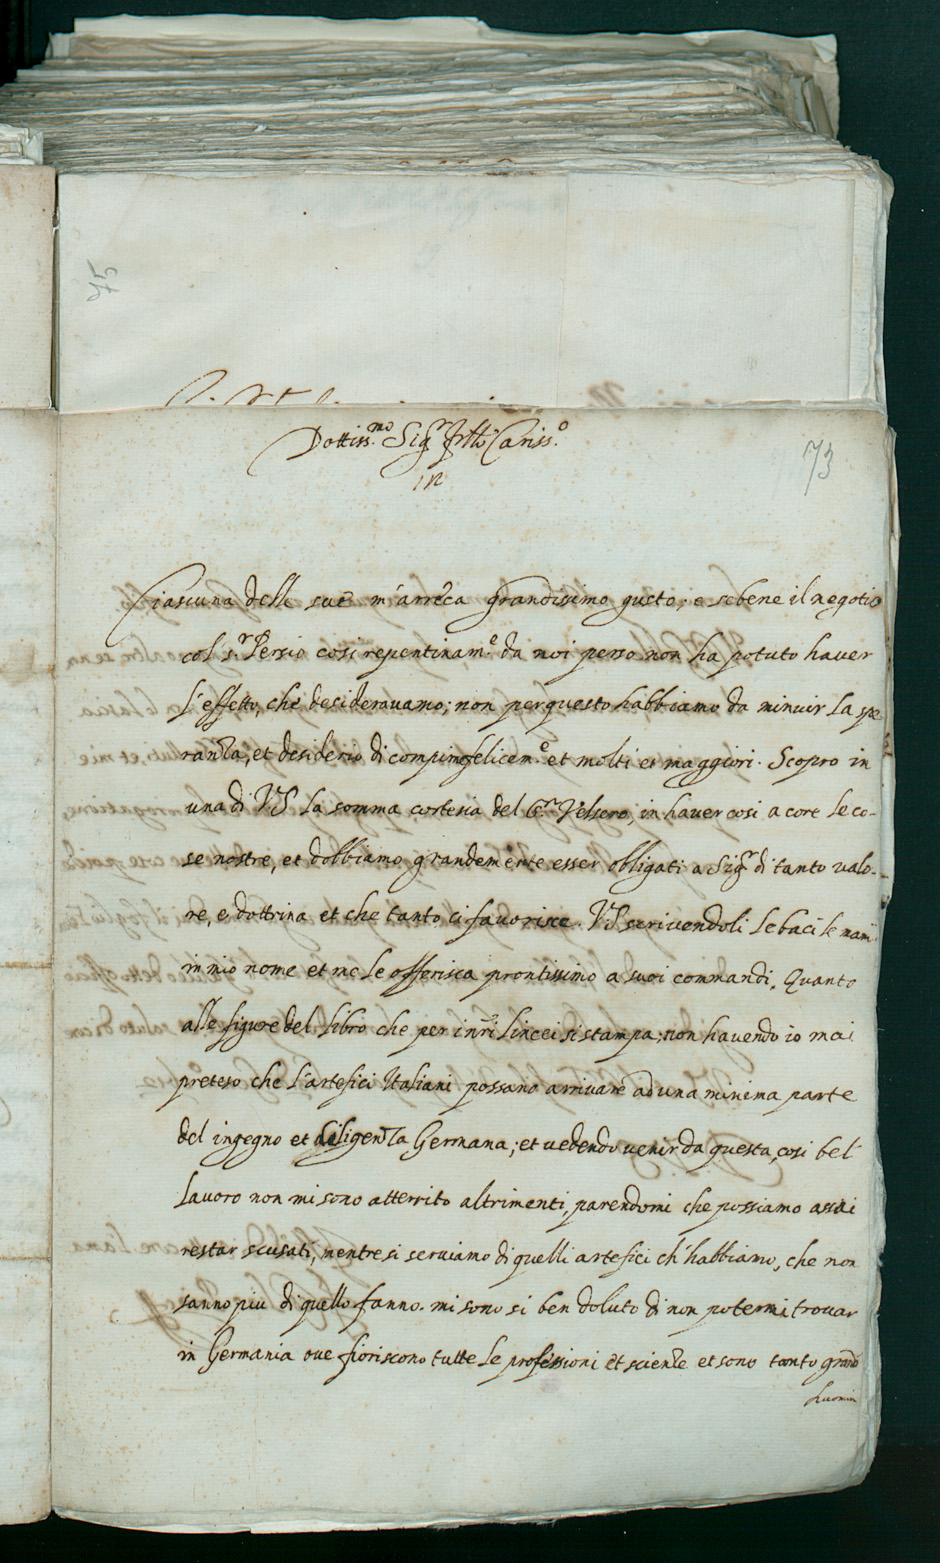 75
Dottiss.mo Sig.r Cariss.o
in
73
Ciascuna delle sue m'arreca grandissimo gusto; e sebene il negotio
col s.r Persio cosi repentinam.e da noi perso non ha potuto haver
l'effetto, che desideravamo; non per questo habbiamo da minuir la spe
ranza, et desiderio di compir felicem.e et molti et maggiori. Scopro in
una di VS la somma cortesia del Velsero, in haver cosi a core le co-
se nostre, et dobbiamo grandemente esser obligati a Sig.r di tanto valo-
re, e dottrina et che tanto ci favorisce. VS scrivendoli le baci le mani
in mio nome et me le offerisca prontissimo a suoi commandi. Quanto
alle figure del libro che per inri lincei si stampa; non havendo io mai
preteso che l'artefici Italiani possano arrivare ad una minima parte
del ingegno et diligenza Germana; et vedendo venir da questa, cosi bel
lavoro non mi sono atterrito altrimenti, parendomi che possiamo assai
restar scusati, mentre si serviamo di quelli artefici ch'habbiamo, che non
sanno piu di quello fanno. mi sono si ben doluto di non potermi trovar
in Germania ove fioriscono tutte le professioni et scienze et sono tanto grand
huomin